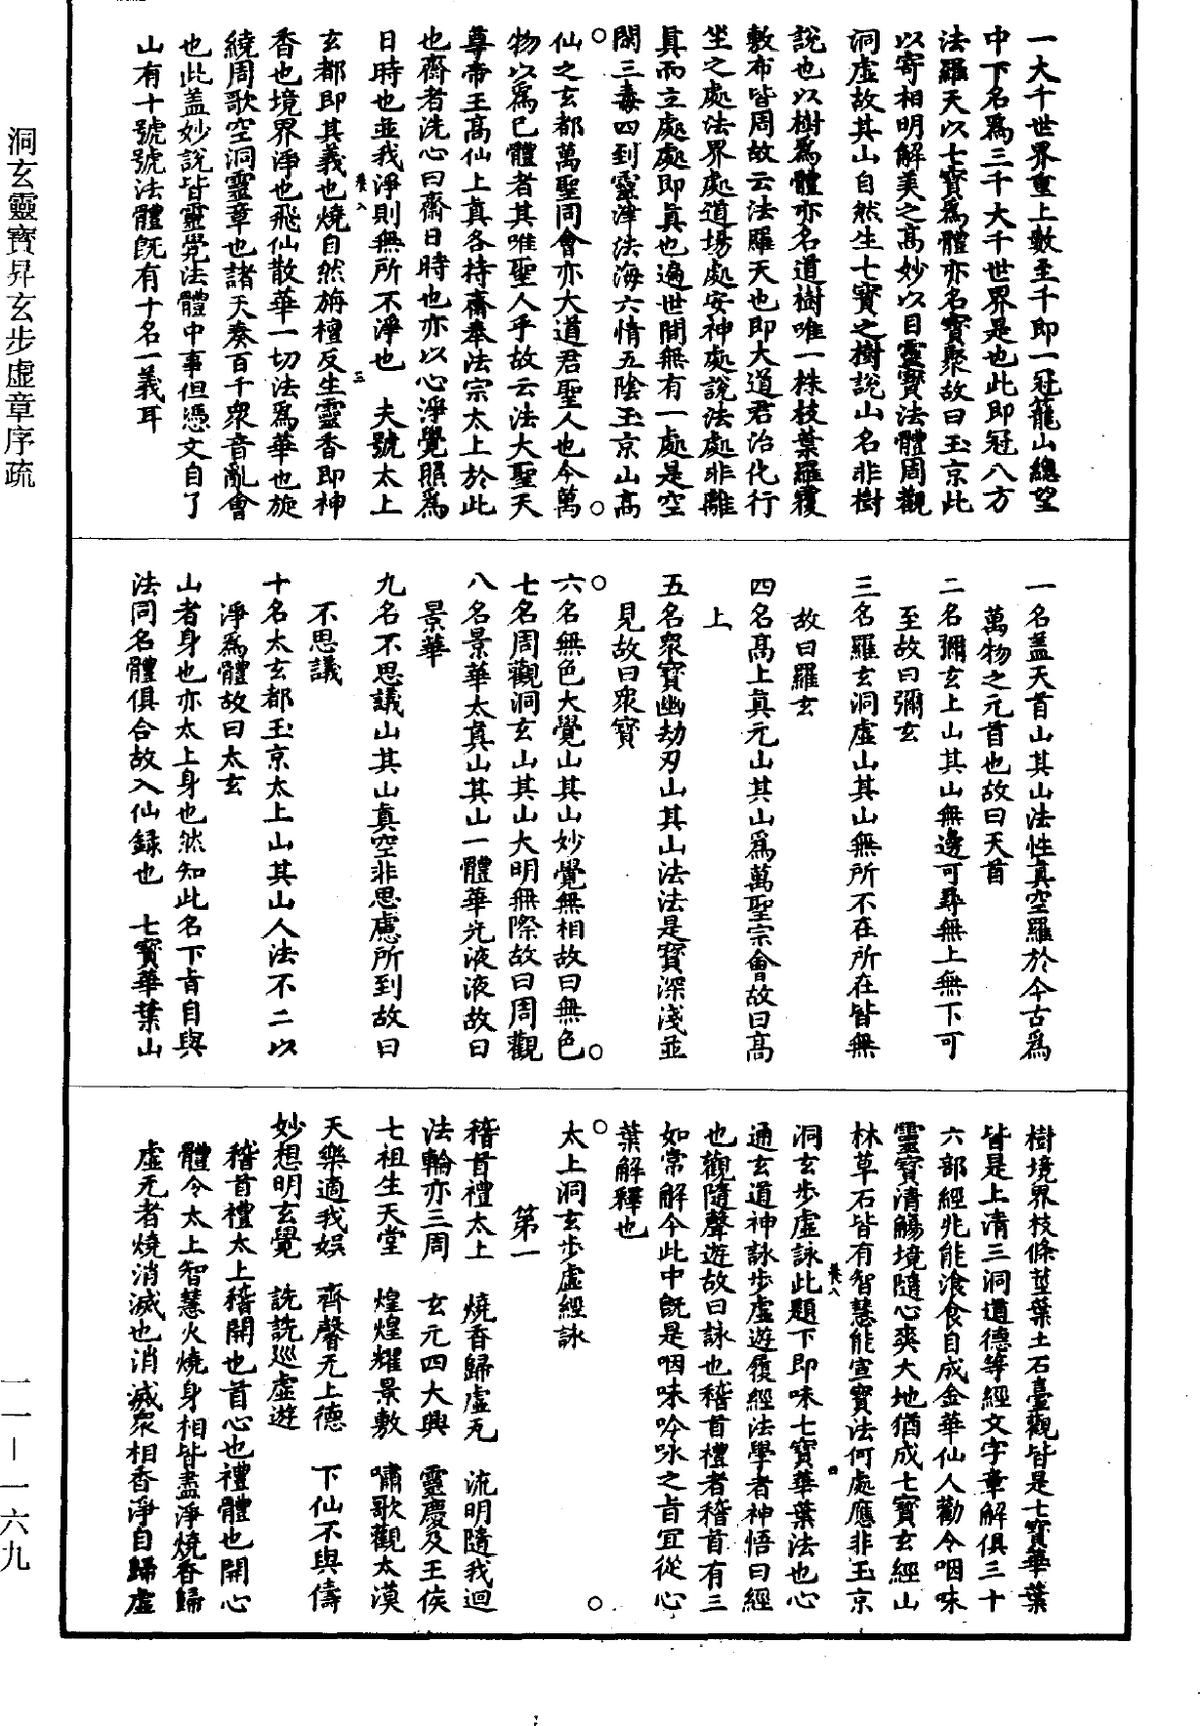 洞玄靈寶昇玄步虛章序疏
一一－一六九
一大千世界重上數至千即一冠籠山總望
中下名為三千大千世界是也此即冠八方
法羅天以七寶為體亦名寶聚故曰玉京此
以寄相明解美之高妙以目靈寶法體周觀
洞虛故其山自然生七寶之樹說山名非樹
說也以樹為體亦名道樹唯一株枝葉羅覆
敷布皆周故云法羅天也即大道君治化行
坐之處法界處道場處安神處說法處非離
真而立處處即真也遍世間無有一處是空
閑三毒四到靈津法海六情五陰玉京山高
仙之玄都萬聖同會亦大道君聖人也今萬
物以為已體者其唯聖人乎故云法大聖天
尊帝王高仙上真各持齋奉法宗太上於此
也齋者洗心曰齋日時也亦以心淨覺照為
日時也並我淨則無所不淨也　夫號太上
玄都即其義也燒自然旃檀反生靈香即神
香也境界淨也飛仙散華一切法為華也旋
繞周歌空洞靈章也諸天奏百千眾音亂會
也此蓋妙說皆靈覺法體中事但憑文自了
山有十號號法體既有十名一義耳
一名蓋天首山其山法性真空羅於今古為
萬物之元首也故曰天首
二名彌玄上山其山無邊可尋無上無下可
至故曰彌玄
三名羅玄洞虛山其山無所不在所在皆無
故曰羅玄
四名高上真元山其山為萬聖宗會故曰高
上
五名眾寶幽劫刃山其山法法是寶深淺並
見故曰眾寶
六名無色大覺山其山妙覺無相故曰無色
七名周觀洞玄山其山大明無際故曰周觀
八名景華太真山其山一體華光液液故曰
景華
九名不思議山其山真空非思慮所到故曰
不思議
十名太玄都玉京太上山其山人法不二以
淨為體故曰太玄
山者身也亦太上身也然知此名下旨自與
法同名體俱合故入仙録也　七寶華葉山
樹境界枝條莖葉土石臺觀皆是七寶華葉
皆是上清三洞道德等經文字章解俱三十
六部經兆能飡食自成金華仙人勸令咽味
靈寶清觴境隨心爽大地猶成七寶玄經山
林草石皆有智慧能宣寶法何處應非玉京
洞玄步虛詠此題下即味七寶華葉法也心
通玄道神詠步虛遊履經法學者神悟曰經
也觀隨聲遊故曰詠也稽首禮者稽首有三
如常解今此中既是咽味吟咏之旨宜從心
葉解釋也
太上洞玄步虛經詠
第一
稽首禮太上　燒香歸虛无　流明隨我迴
法輪亦三周　玄元四大興　靈慶及王侯
七祖生天堂　煌煌耀景敷　嘯歌觀太漠
天樂適我娛　齊馨无上德　下仙不與儔
妙想明玄覺　詵詵巡虛遊
稽首禮太上稽開也首心也禮體也開心
體令太上智慧火燒身相皆盡淨燒香歸
虛无者燒消滅也消滅眾相香淨自歸虛